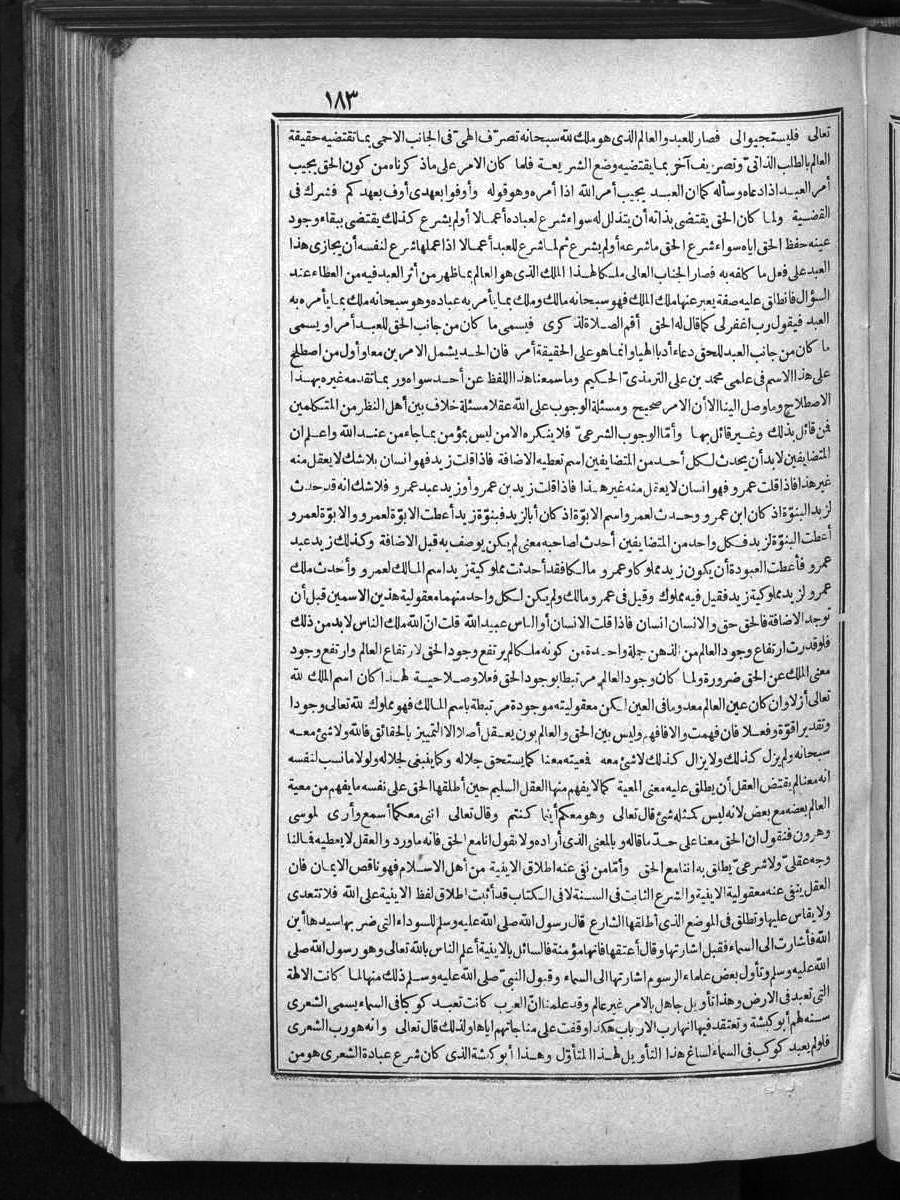 ١٨٣
تعالى فليستجيبوا لى فصار للعبد والعالم الذى هو ملك لله سبحانه تصرّف الهىّ فى الجانب الاحمى بما تقتضيه حقيقة
العالم بالطلب الذاتىّ وتصريف آخر بما يقتضيه وضع الشريعة فلما كان الامر على ما ذكرناه من كون الحق يجيب
أمر العبد اذا دعاه وسأله كما ان العبد يجيب أمر الله اذا أمره وهو قوله وأوفوا بعهدى أوف بعهدكم فشرك فى
القضية ولما كان الحق يقتضى بذاته أن يتذلل له سواء شرع لعباده أعمالا أو لم يشرع كذلك يقتضى ببقاء وجود
عينه حفظ الحق اياه سواء شرع الحق ما شرعه أو لم يشرع ثم لما شرع للعبد أعمالا اذا عملها شرع لنفسه أن يجازى هذا
العبد على فعل ما كلفه به فصار الجناب العالى ملكا لهذا الملك الذى هو العالم بما ظهر من أثر العبد فيه من العطاء عند
السؤال فانطلق عليه صفة يعبر عنها ملك الملك فهو سبحانه مالك وملك بما يأمر به عباده وهو سبحانه ملك بما يأمره به
العبد فيقول رب اغفر لى كما قال له الحق أقم الصلاة لذكرى فيسمى ما كان من جانب الحق للعبد أمرا ويسمى
ما كان من جانب العبد للحق دعاء أدبا الهيا وانما هو على الحقيقة أمر فان الحد يشمل الامرين معا وأول من اصطلح
على هذا الاسم فى علمى محمد بن على الترمذىّ الحكيم وما سمعنا هذا اللفظ عن أحد سواه وربما تقدمه غيره بهذا
الاصطلاح وما وصل الينا الا أن الامر صحيح ومسئلة الوجوب على الله عقلا مسئلة خلاف بين أهل النظر من المتكلمين
فمن قائل بذلك وغير قائل بها وأمّا الوجوب الشرعىّ فلا ينكره الا من ليس بمؤمن بما جاء من عند الله واعلم ان
المتضايفين لا بد أن يحدث لكل أحد من المتضايفين اسم تعطيه الاضافة فاذا قلت زيد فهو انسان بلا شك لا يعقل منه
غير هذا فاذا قلت عمرو فهو انسان لا يعقل منه غير هذا فاذا قلت زيد بن عمرو أو زيد عبد عمرو فلا شك انه قد حدث
لزيد البنوّة اذ كان ابن عمرو وحدث لعمرو اسم الابوّة اذ كان أبا لزيد فبنوّة زيد أعطت الابوّة لعمرو والابوّة لعمرو
أعطت البنوّة لزيد فكل واحد من المتضايفين أحدث لصاحبه معنى لم يكن يوصف به قبل الاضافة وكذلك زيد عبد
عمرو فأعطت العبودة أن يكون زيد مملوكا وعمرو مالكا فقد أحدثت مملوكية زيد اسم المالك لعمرو وأحدث ملك
عمرو لزيد مملوكية زيد فقيل فيه مملوك وقيل فى عمرو مالك ولم يكن لكل واحد منهما معقولية هذين الاسمين قبل أن
توجد الاضافة فالحق حق والانسان انسان فاذا قلت الانسان أو الناس عبيد الله قلت انّ الله ملك الناس لا بد من ذلك
فلو قدرت ارتفاع وجود العالم من الذهن جملة واحدة من كونه ملكا لم يرتفع وجود الحق لارتفاع العالم وارتفع وجود
معنى الملك عن الحق ضرورة ولما كان وجود العالم مرتبطا بوجود الحق فعلا وصلاحية لهذا كان اسم الملك لله
تعالى أزلا وان كان عين العالم معدوما فى العين لكن معقوليته موجودة مرتبطة باسم المالك فهو مملوك لله تعالى وجودا
وتقديرا قوّة وفعلا فان فهمت والا فافهم وليس بين الحق والعالم بون يعقل أصلا الا التمييز بالحقائق فالله ولا شئ معه
سبحانه ولم يزل كذلك ولا يزال كذلك لا شئ معه فمعيته معنا كما يستحق جلاله وكما ينبغى لجلاله ولولا ما نسب لنفسه
انه معنا لم يقتض العقل أن يطلق عليه معنى المعية كما لا يفهم منها العقل السليم حين أطلقها الحق على نفسه ما يفهم من معية
العالم بعضه مع بعض لانه ليس كمثله شئ قال تعالى وهو معكم أينما كنتم وقال تعالى اننى معكما أسمع وأرى لموسى
وهرون فنقول ان الحق معنا على حدّ ما قاله وبالمعنى الذى أراده ولا نقول انا مع الحق فانه ما ورد والعقل لا يعطيه فما لنا
وجه عقلىّ ولا شرعىّ يطلق به اننا مع الحق وأمّا من نفى عنه اطلاق الاينية من أهل الاسلام فهو ناقص الايمان فان
العقل ينفى عنه معقولية الاينية والشرع الثابت فى السنة لا فى الكتاب قد أثبت اطلاق لفظ الاينية على الله فلا تتعدى
ولا يقاس عليها وتطلق فى الموضع الذى أطلقها الشارع قال رسول الله صلى الله عليه وسلم للسوداء التى ضربها سيدها أين
الله فأشارت الى السماء فقبل اشارتها وقال أعتقها فانها مؤمنة فالسائل بالاينية أعلم الناس بالله تعالى وهو رسول الله صلى
الله عليه وسلم وتأول بعض علماء الرسوم اشارتها الى السماء وقبول النبىّ صلى الله عليه وسلم ذلك منها لما كانت الآلهة
التى تعبد فى الارض وهذا تأويل جاهل بالامر غير عالم وقد علمنا انّ العرب كانت تعبد كوكبا فى السماء يسمى الشعرى
سنه لهم أبو كبشة وتعتقد فيها انها رب الارباب هكذا وقفت على مناجاتهم اياها ولذلك قال تعالى وانه هو رب الشعرى
فلو لم يعبد كوكب فى السماء لساغ هذا التأويل لهذا المتأوّل وهذا أبو كبشة الذى كان شرع عبادة الشعرى هو من